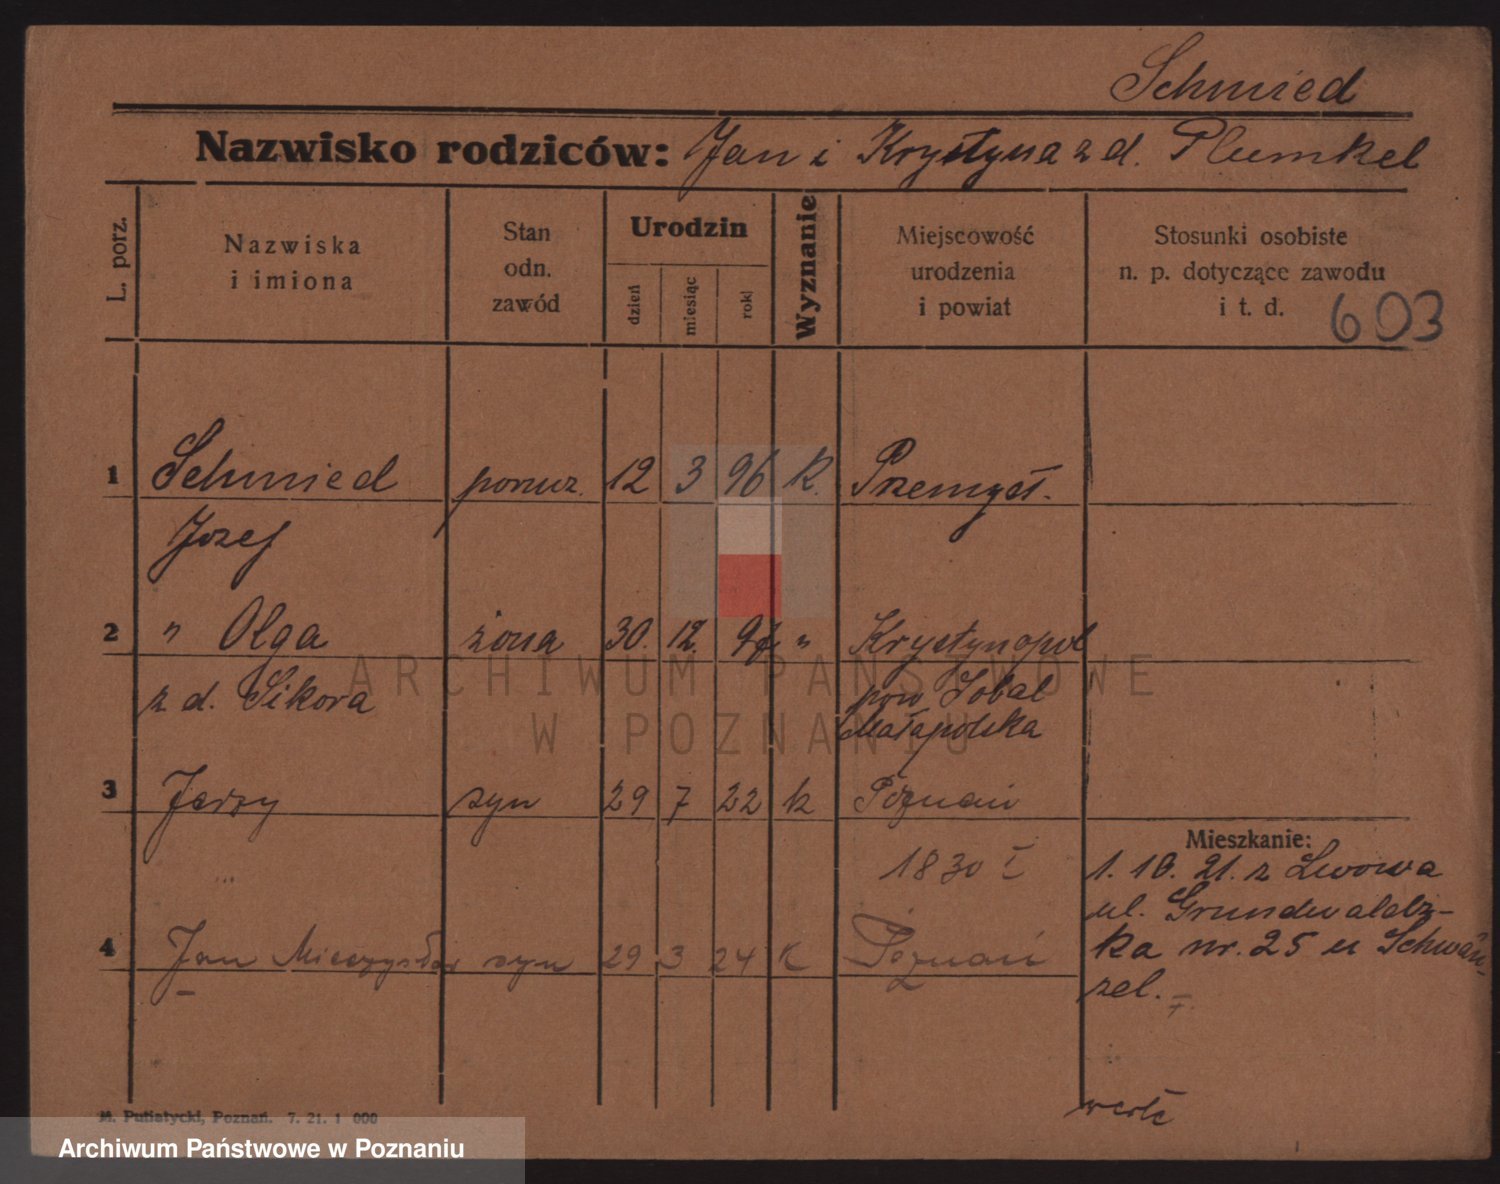 Schmied
Nazwisko rodziców: Jan i Krystyna z d. Plumkel
L. porz.
Nazwiska
i imiona
Stan
odn.
zawód
Urodzin
dzień
miesiąc
rok
Wyznanie
Miejscowość
urodzenia
i powiat
Stosunki osobiste
n. p. dotyczące zawodu
i t. d.
603
1 Schmied porucz. 12 3 96 k. Przemyśl.
Józef
2 " Olga żona 30. 12. 97 " Krystynopol
z d. Sikora pow Sobal
Małopolska
3 Jerzy syn 29 7 22 k Poznań
Mieszkanie:
1830 I
1. 10. 21. z Lwowa
ul. Grundwaldz-
4 Jan Mieczysław syn 29 3 24 k Poznań
ka nr. 25 u Schwän-
zel.
M. Putiatycki, Poznań. 7. 21. 1 000
ARCHIWUM PAŃSTWOWE
W POZNANIU
Archiwum Państwowe w Poznaniu